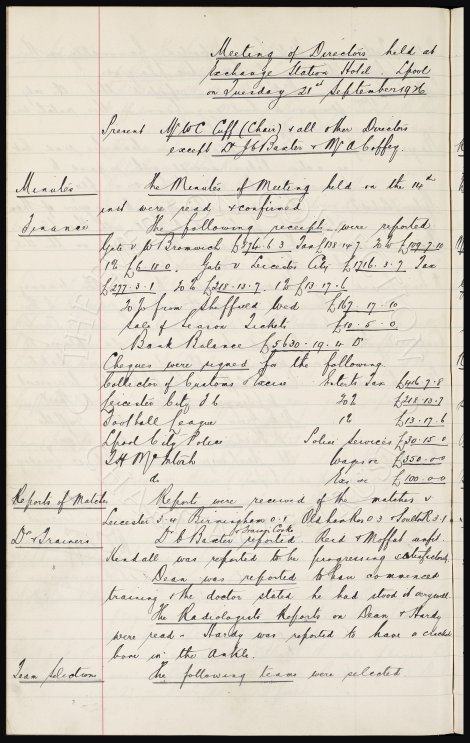 Meeting of Directors held at
Exchange Station Hotel Lpool
on Tuesday 21st September 1926
Present Mr W C Cuff (Chair) & all other Directors
except Dr J C Baxter & Mr A Coffey.
Minutes The Minutes of Meeting held on the 14th
inst were read & confirmed
Finance The following receipts were reported
Gate v W Bromwich £874.6.3 Tax £138.14.7 20% £109.7.10
1% £6.18.0. Gate v Leicester City £1716.3.7 Tax
£277.3.1 20% £218.13.7 1% £13.17.6
20% from Sheffield Wed £167.17.10
Sale of Season Tickets £10.5.0
Bank Balance £5630.19.4 Dr
Cheques were signed for the following.
Collector of Customs & Excise Enterts Tax £416.7.8
Leicester City F C 20% £218.13.7
Football League 1% £13.17.6
Lpool City Police Police Services £30.15.0
T H McIntosh Wages a/c £350.0.0
do Exs a/c £100.0.0
Reports of Matches Reports were received of the matches v
Leicester 3.4, Birmingham 0.1, Oldham Res 0.3 & South R 3.1
Drs & Trainers Dr C Baxter & Trainer Cooke reported Reed & Moffat unfit.
Kendall was reported to be progressing satisfactorily
Dean was reported to have commenced
training & the doctor stated he had stood it very well.
The Radiologists Reports on Dean & Hardy
were read - Hardy was reported to have a
bone in the Ankle.
Team Selections The following teams were selected